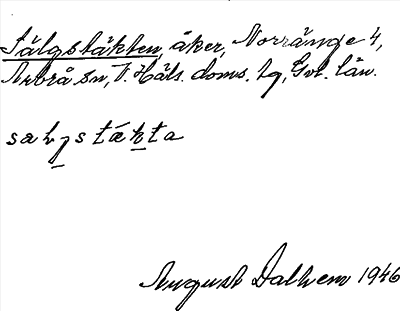 Sälgstäkten, åker, Norränge 4,
Arbrå sn, V. Häls. doms. tg, Gvl. län.
saḻgstáḵta
August Dalhem 1946